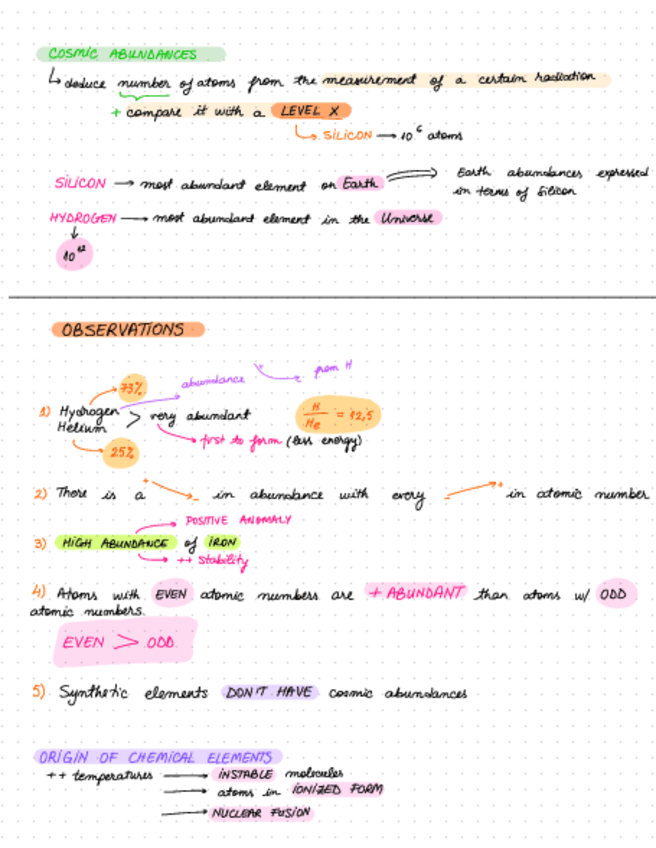 COSMIC ABUNDANCES
↳ deduce number of atoms from the measurement of a certain radiation
+ compare it with a LEVEL X
↳ SILICON → 10⁶ atoms
SILICON → most abundant element on Earth ⇒ Earth abundances expressed
in terms of Silicon
HYDROGEN → most abundant element in the Universe
↓
10¹²
OBSERVATIONS
73% abundance from H
1) Hydrogen
Helium > very abundant H/He = 12,5
→ first to form (less energy)
25%
2) There is a + → - in abundance with every - → + in atomic number
→ POSITIVE ANOMALY
3) HIGH ABUNDANCE of IRON
→ ++ Stability
4) Atoms with EVEN atomic numbers are + ABUNDANT than atoms w/ ODD
atomic numbers.
EVEN > ODD
5) Synthetic elements DON'T HAVE cosmic abundances
ORIGIN OF CHEMICAL ELEMENTS
++ temperatures → INSTABLE molecules
→ atoms in IONIZED FORM
→ NUCLEAR FUSION